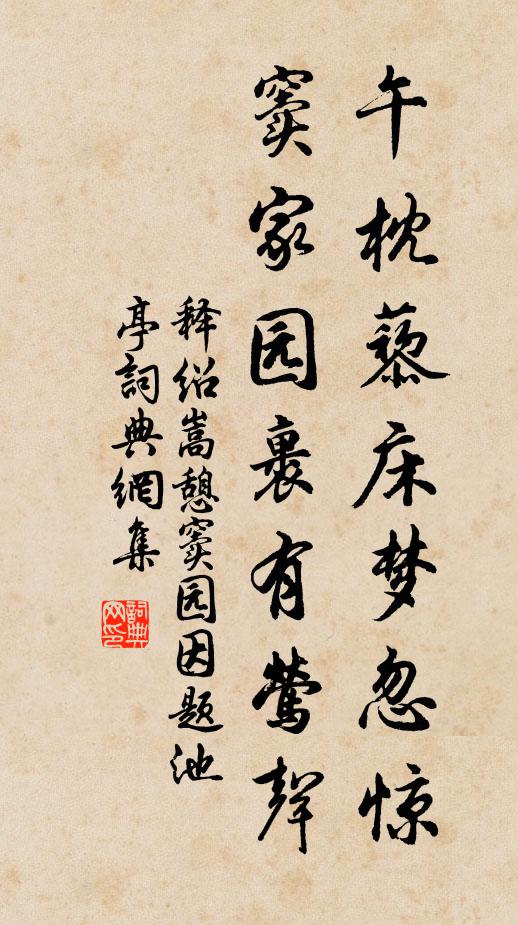 午枕藜床梦忽惊
窦家园裏有莺聲
释绍嵩憩窦园因题池
亭詞典網集
詞典网印